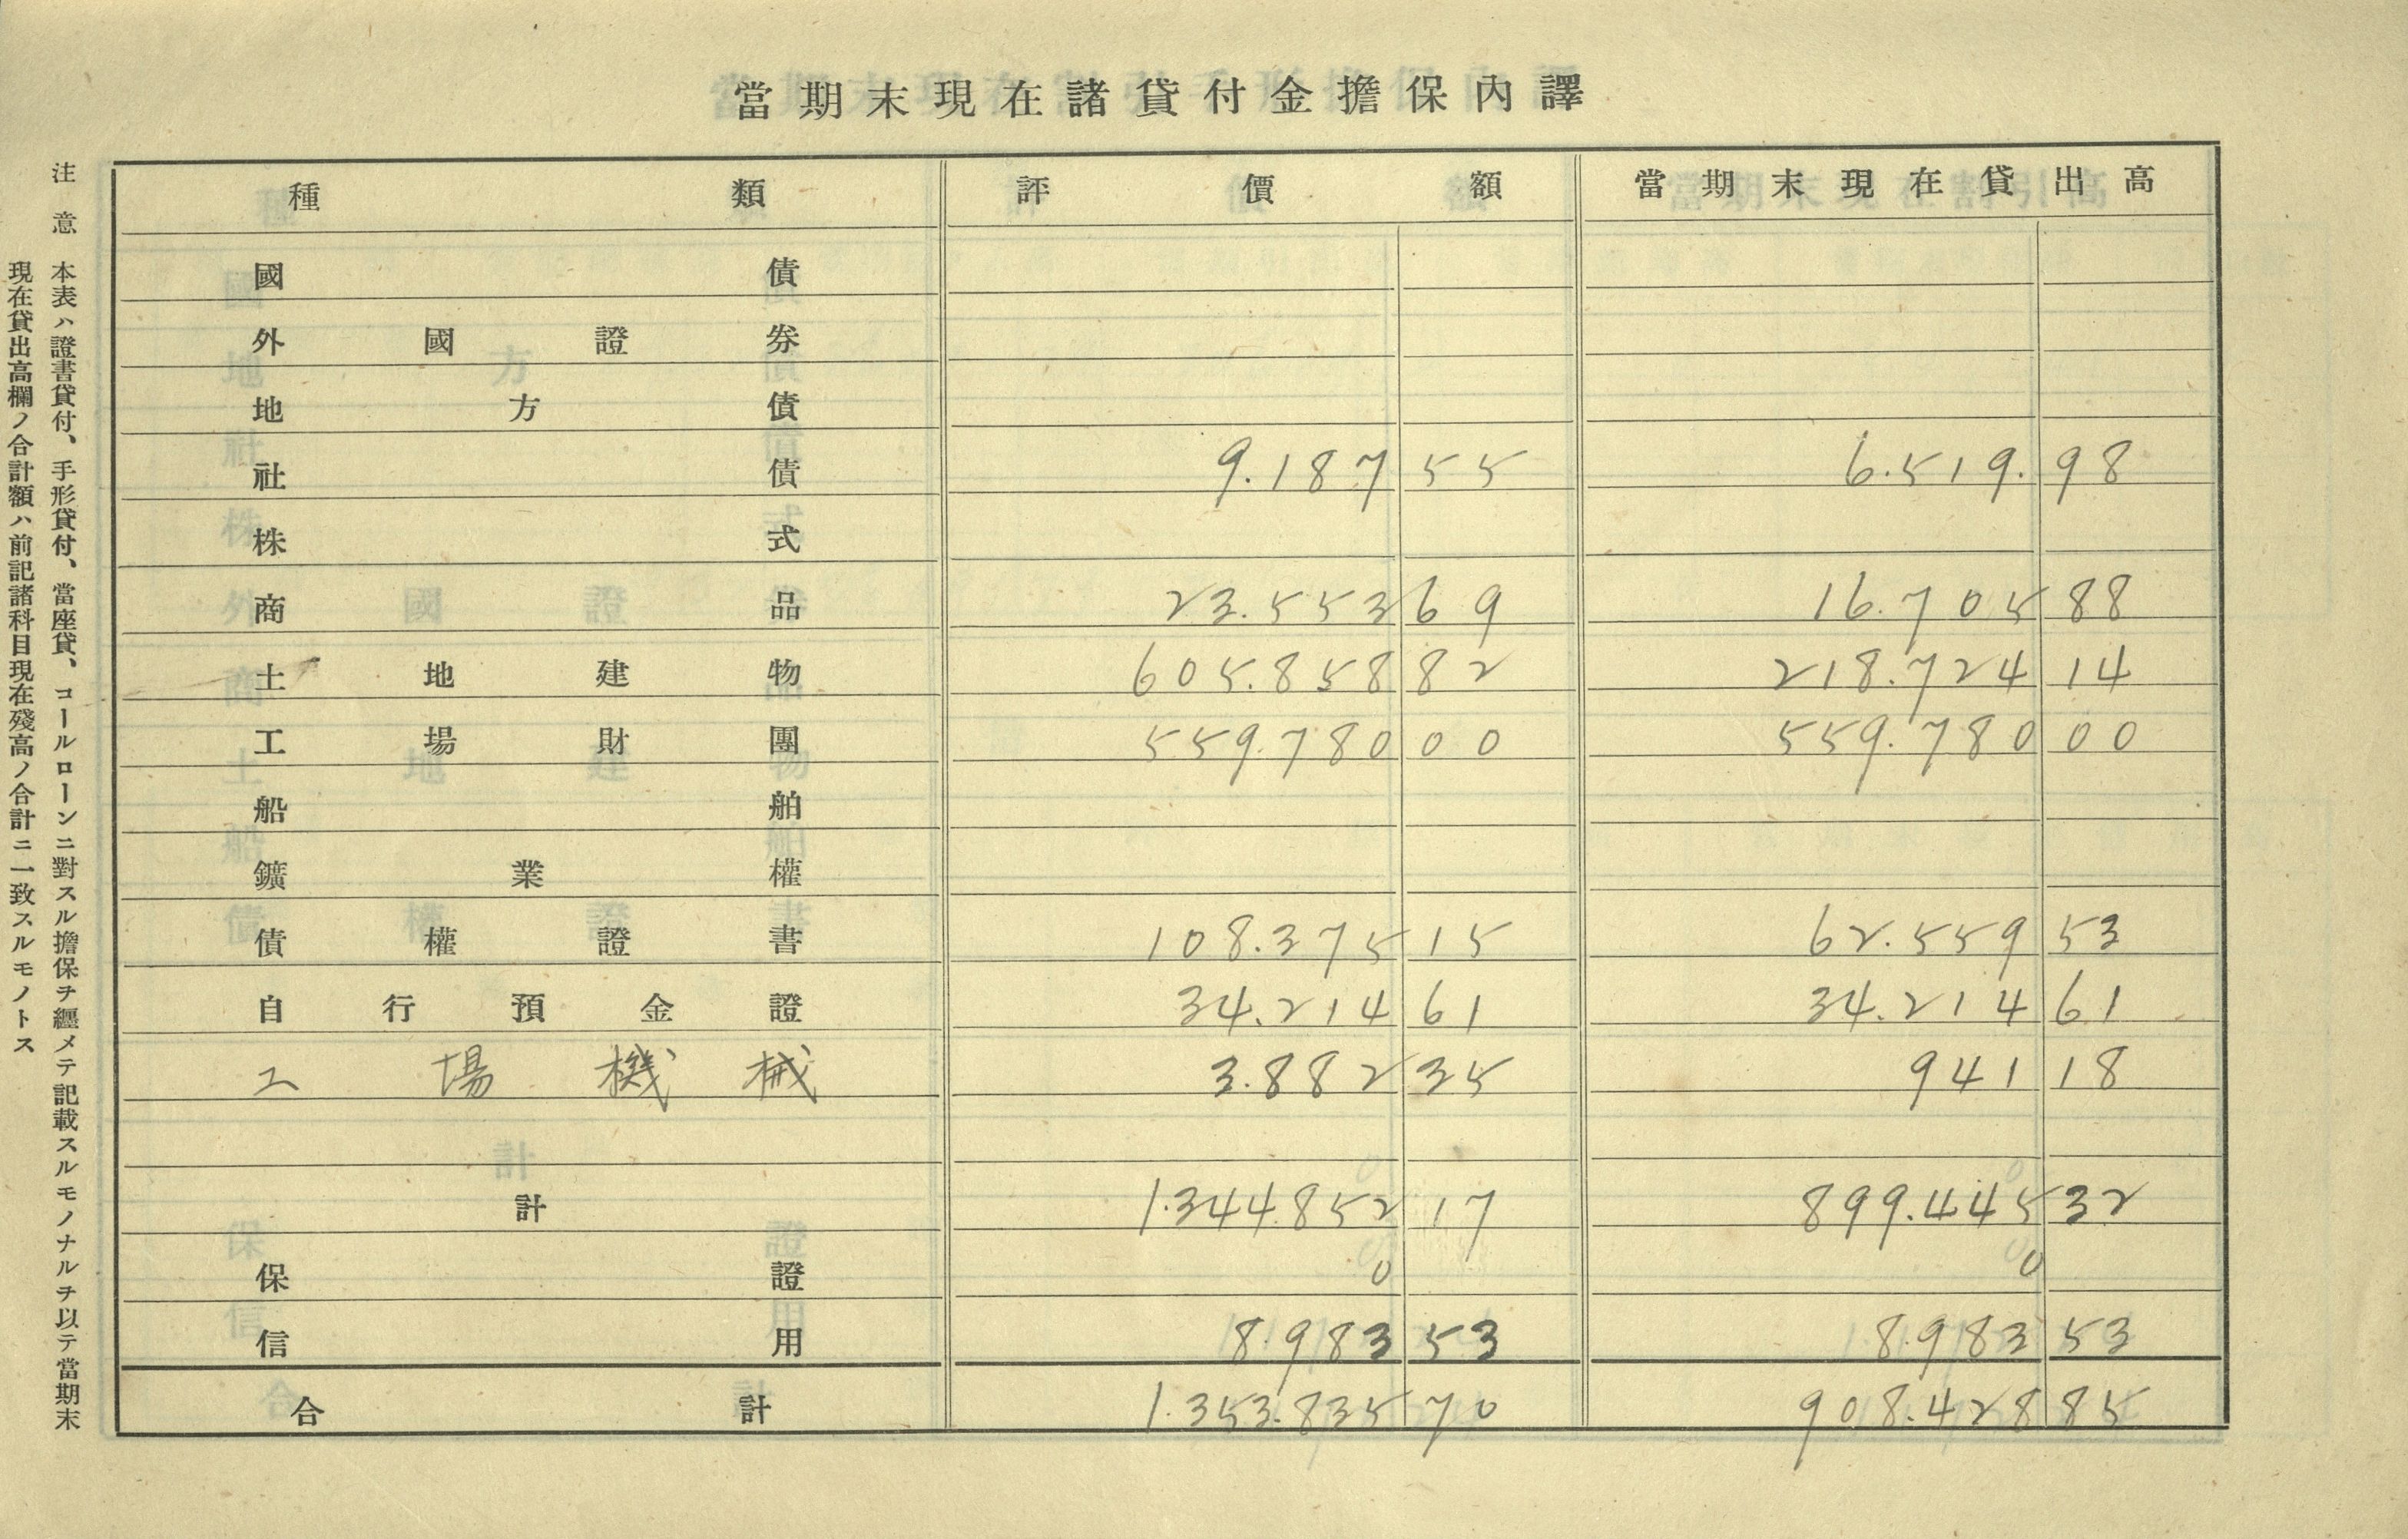 當期末現在諸貸付金擔保內譯
種類 評價額 當期末現在貸出高
國債
外國證券
地方債
社債 9.187 55 6.519. 98
株式
商品 23.553 69 16.705 88
土地建物 605.858 82 218.724 14
工場財團 559.780 00 559.780 00
船舶
鑛業權
債權證書 108.375 15 62.559 53
自行預金證 34.214 61 34.214 61
工場機械 3.882 35 941 18
計 1.344.852 17 899.445 32
保證 0 0
信用 8.983 53 8.983 53
合計 1.353.835 70 908.428 85
注意 本表ハ證書貸付、手形貸付、當座貸、コールローンニ對スル擔保ヲ纒メテ記載スルモノナルヲ以テ當期末
現在貸出高欄ノ合計額ハ前記諸科目現在殘高ノ合計ニ一致スルモノトス